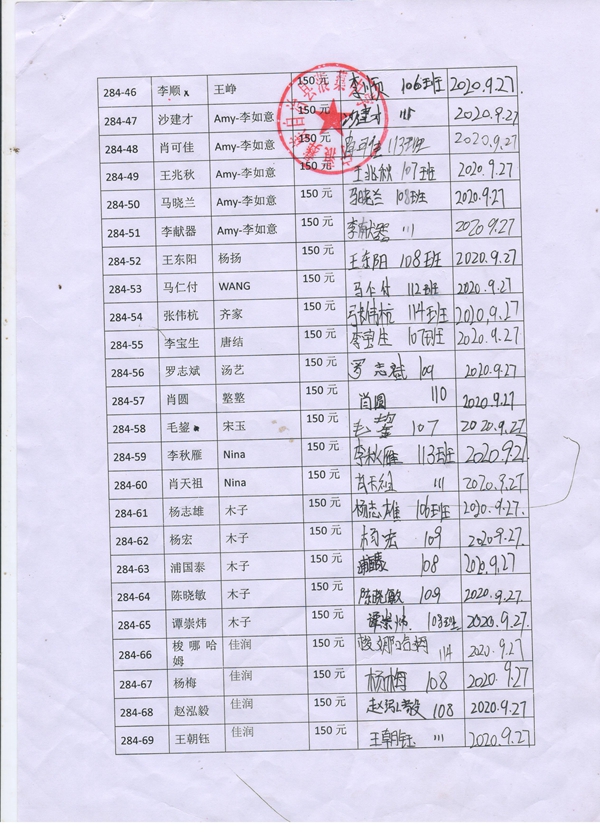 284-46 李顺 王峥 150元 李顺 106班 2020.9.27
284-47 沙建才 Amy-李如意 150元 沙建才 111 2020.9.27
284-48 肖可佳 Amy-李如意 150元 肖可佳 113班 2020.9.27
284-49 王兆秋 Amy-李如意 150元 王兆秋 107班 2020.9.27
284-50 马晓兰 Amy-李如意 150元 马晓兰 108班 2020.9.27
284-51 李献器 Amy-李如意 150元 李献器 111 2020.9.27
284-52 王东阳 杨扬 150元 王东阳 108班 2020.9.27
284-53 马仁付 WANG 150元 马仁付 112班 2020.9.27
284-54 张伟杭 齐家 150元 张伟杭 114班 2020.9.27
284-55 李宝生 唐结 150元 李宝生 107班 2020.9.27
284-56 罗志斌 汤艺 150元 罗志斌 109 2020.9.27
284-57 肖圆 整整 150元 肖圆 110 2020.9.27
284-58 毛鋆 宋玉 150元 毛鋆 107 2020.9.27
284-59 李秋雁 Nina 150元 李秋雁 113班 2020.9.27
284-60 肖天祖 Nina 150元 肖天祖 111 2020.9.27
284-61 杨志雄 木子 150元 杨志雄 106班 2020.9.27
284-62 杨宏 木子 150元 杨宏 109 2020.9.27
284-63 浦国泰 木子 150元 108 2020.9.27
284-64 陈晓敏 木子 150元 陈晓敏 109 2020.9.27
284-65 谭崇炜 木子 150元 谭崇炜 108班 2020.9.27
284-66 梭哪哈姆 佳润 150元 114 2020.9.27
284-67 杨梅 佳润 150元 杨梅 108 2020.9.27
284-68 赵泓毅 佳润 150元 赵泓毅 108 2020.9.27
284-69 王朝钰 佳润 150元 王朝钰 111 2020.9.27